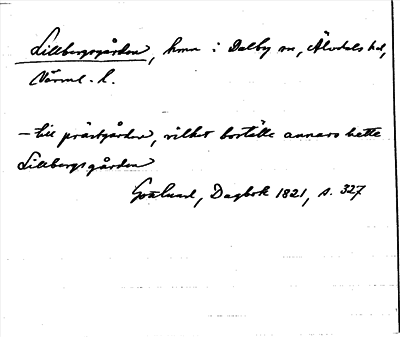 Lillbergsgården, hmn i Dalby sn, Älvdals hd,
Värml. l.
– till prästgården, vilket bortåtte annars hette
Lillbergsgården
Gottlund, Dagbok 1821, s. 327